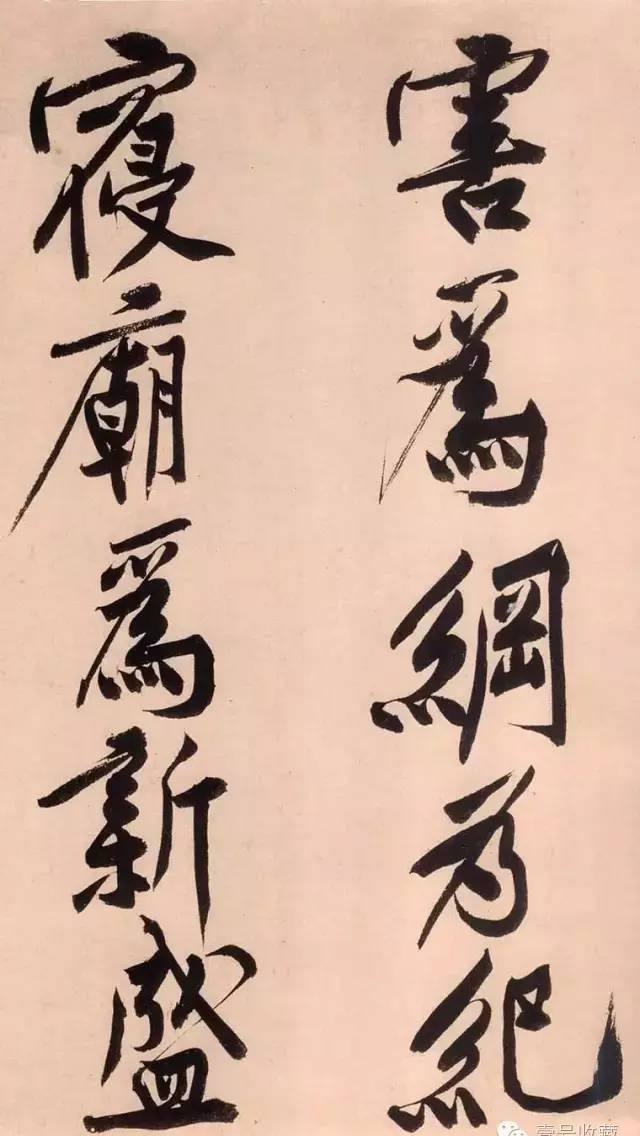 害爲綱为紀
寢廟爲新盛
壹号收藏